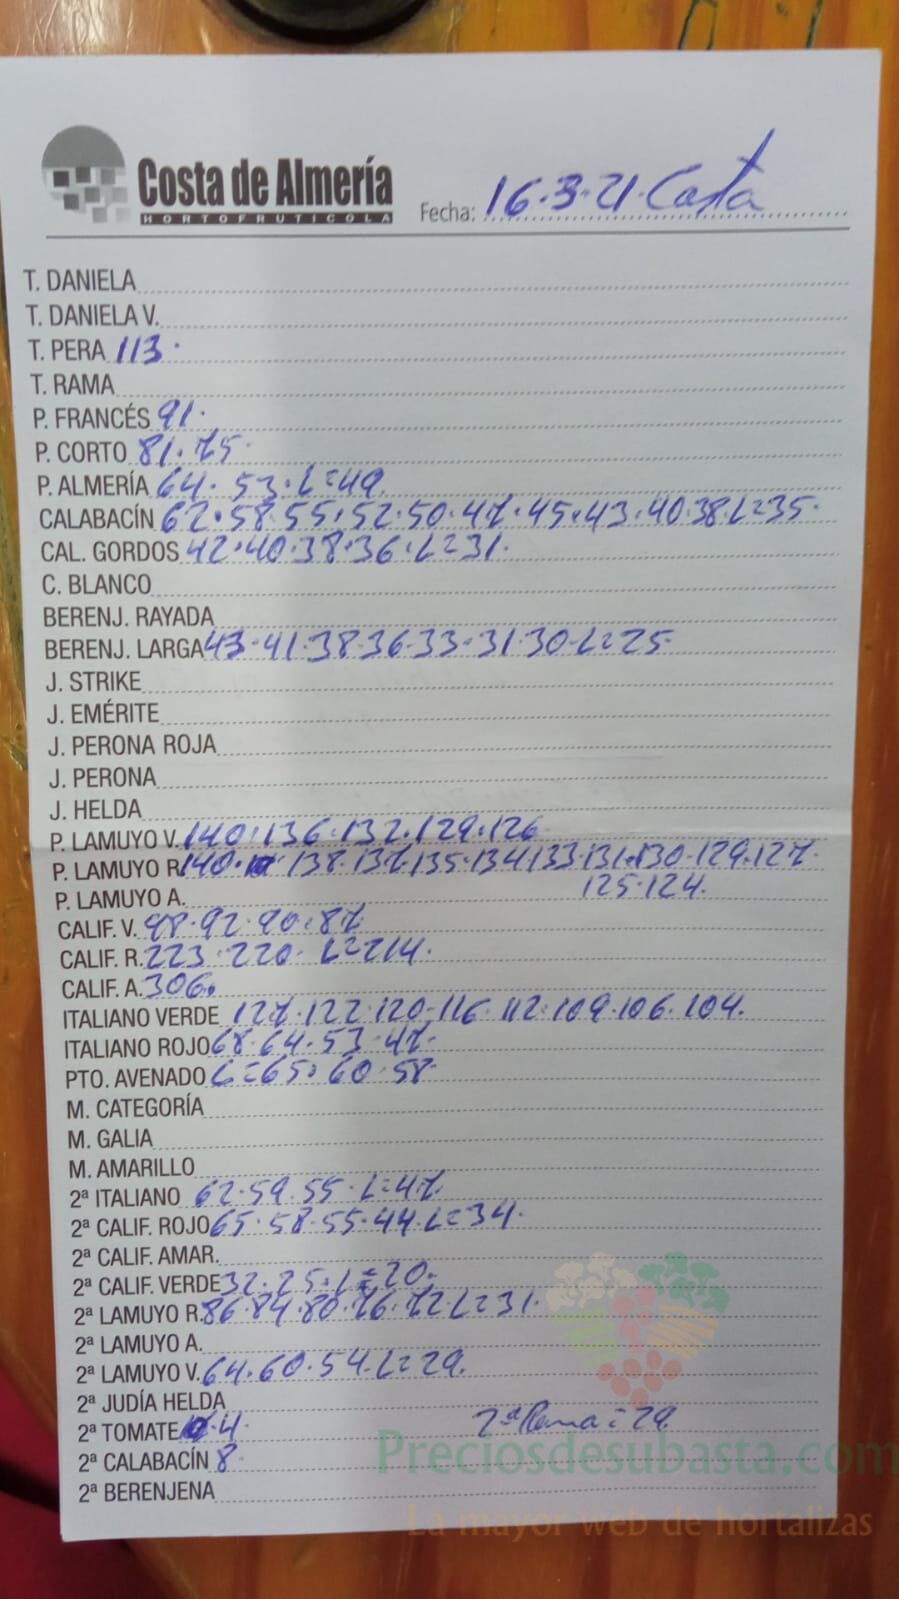 Costa de Almería
HORTOFRUTICOLA
Fecha: 16.3.21. Costa
T. DANIELA
T. DANIELA V.
T. PERA 113.
T. RAMA
P. FRANCÉS 91.
P. CORTO 81. 75.
P. ALMERÍA 64. 53. L=49.
CALABACÍN 62.58.55.52.50.47.45.43.40.38.L=35.
CAL. GORDOS 42.40.38.36.L=31.
C. BLANCO
BERENJ. RAYADA
BERENJ. LARGA 43.41.38.36.33.31.30.L=25.
J. STRIKE
J. EMÉRITE
J. PERONA ROJA
J. PERONA
J. HELDA
P. LAMUYO V. 140.136.132.129.126
P. LAMUYO R. 140. 138.137.135.134.133.131.130.129.127.
125.124.
P. LAMUYO A.
CALIF. V. 98.92.90.87.
CALIF. R. 223.220. L=214.
CALIF. A. 306.
ITALIANO VERDE 127.122.120.116.112.109.106.104.
ITALIANO ROJO 68.64.53.47.
PTO. AVENADO L=65.60.58.
M. CATEGORÍA
M. GALIA
M. AMARILLO
2ª ITALIANO 62.59.55.L=47.
2ª CALIF. ROJO 65.58.55.44.L=34.
2ª CALIF. AMAR.
2ª CALIF. VERDE 32.25.L=20.
2ª LAMUYO R. 86.84.80.76.72.L=31.
2ª LAMUYO A.
2ª LAMUYO V. 64.60.54.L=29.
2ª JUDÍA HELDA
2ª TOMATE 4. 2ª Rama=29.
2ª CALABACÍN 8.
2ª BERENJENA
Preciosdesubasta.com
La mayor web de hortalizas